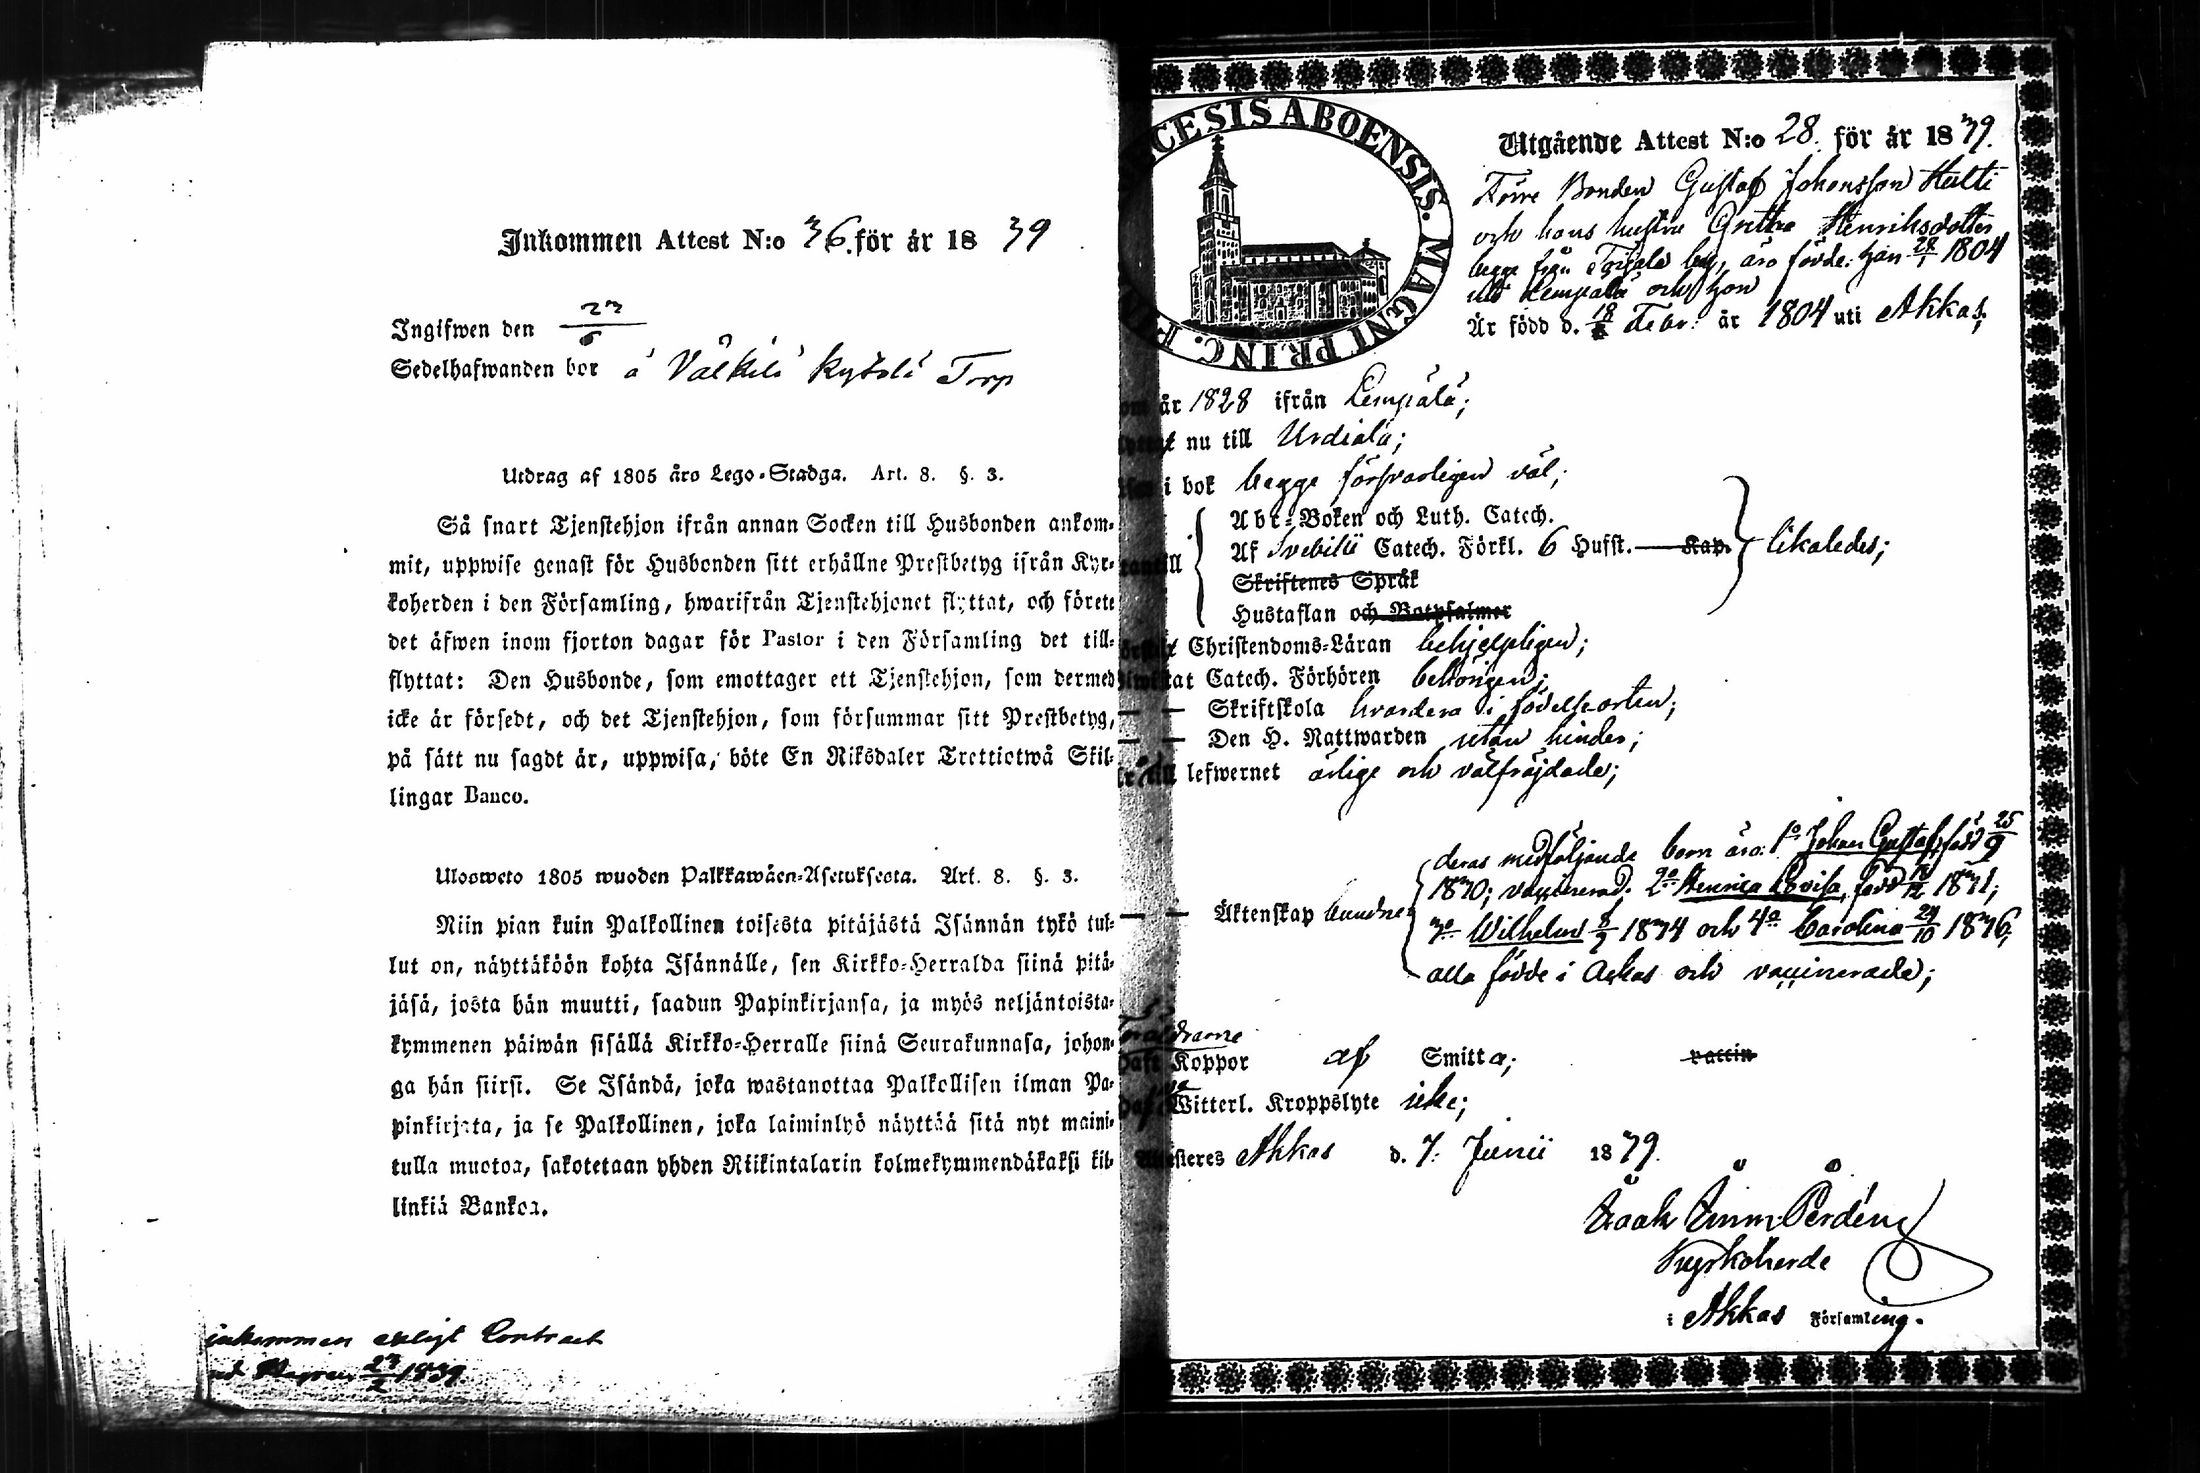 Inkommen Attest N:o 36. för år 1839
Ingifwen den 23/6
Sedelhafwanden bor å Välkilä Kytölä Torp
Utdrag af 1805 års Lego-Stadga. Art. 8. §. 3.
Så snart Tjenstehjon ifrån annan Socken till Husbonden ankom-
mit, uppwise genast för Husbonden sitt erhållne Prestbetyg ifrån Kyr-
koherden i den Församling, hwarifrån Tjenstehjonet flyttat, och förete
det äfwen inom fjorton dagar för Pastor i den Församling det till-
flyttat: Den Husbonde, som emottager ett Tjenstehjon, som dermed
icke är försedt, och det Tjenstehjon, som försummar sitt Prestbetyg,
på sätt nu sagdt är, uppwisa, böte En Riksdaler Trettiotwå Skil-
lingar Banco.
Ulosweto 1805 wuoden Palkkawäen-Asetuksesta. Art. 8. §. 3.
Niin pian kuin Palkollinen toisesta pitäjästä Isännän tykö tul-
lut on, näyttäköön kohta Isännälle, sen Kirkko-Herralda siinä pitä-
jäsä, josta hän muutti, saadun Papinkirjansa, ja myös neljäntoista-
kymmenen päiwän sisällä Kirkko-Herralle siinä Seurakunnasa, johon-
ga hän siirsi. Se Isändä, joka wastanottaa Palkollisen ilman Pa-
pinkirjata, ja se Palkollinen, joka laiminlyö näyttää sitä nyt maini-
tulla muotoa, sakotetaan yhden Riikintalarin kolmekymmendäkaksi kil-
linkiä Bankoa.
inkommen enligt Contract
23/2 1839.
CESIS ABOENSIS. MAGNI PRINC.
Utgående Attest N:o 28. för år 1839.
Förre Bonden Gustaf Johansson Hulti
och hans hustru Gretha Henriksdotter
begge från by, äro födde: han 28/1 1804
uti Lempälä och hon
Är född d. 18 Febr. år 1804 uti Akkas,
år 1828 ifrån Lempälä;
nu till Urdiala;
i bok begge försvarligen väl;
Abc-Boken och Luth. Catech.
Af Svebilii Catech. Förkl. 6 Hufst. Kap. likaledes;
Skriftenes Språk
Hustaflan och Botpsalmer
Christendoms-Läran behjelpligen;
Catech. Förhören behörigen;
Skriftskola hvardera i födelseorten;
Den H. Nattwarden utan hinder;
lefwernet ärlige och välfräjdade;
deras medföljande barn äro: 1o Johan Gustaf, född 25/9
1830; vaccinerad. 2o Henrica Lovisa, född 18/12 1831;
Äktenskap bundne; 3o Wilhelm 8/7 1834 och 4o Carolina 24/10 1836;
alla födde i Ackas och vaccinerade;
Koppor af Smitta; vaccin
Witterl. Kroppslyte icke;
Akkas d. 7. Junii 1839.
Isaak Imm. Perdén
Kyrkoherde
i Akkas Församling.